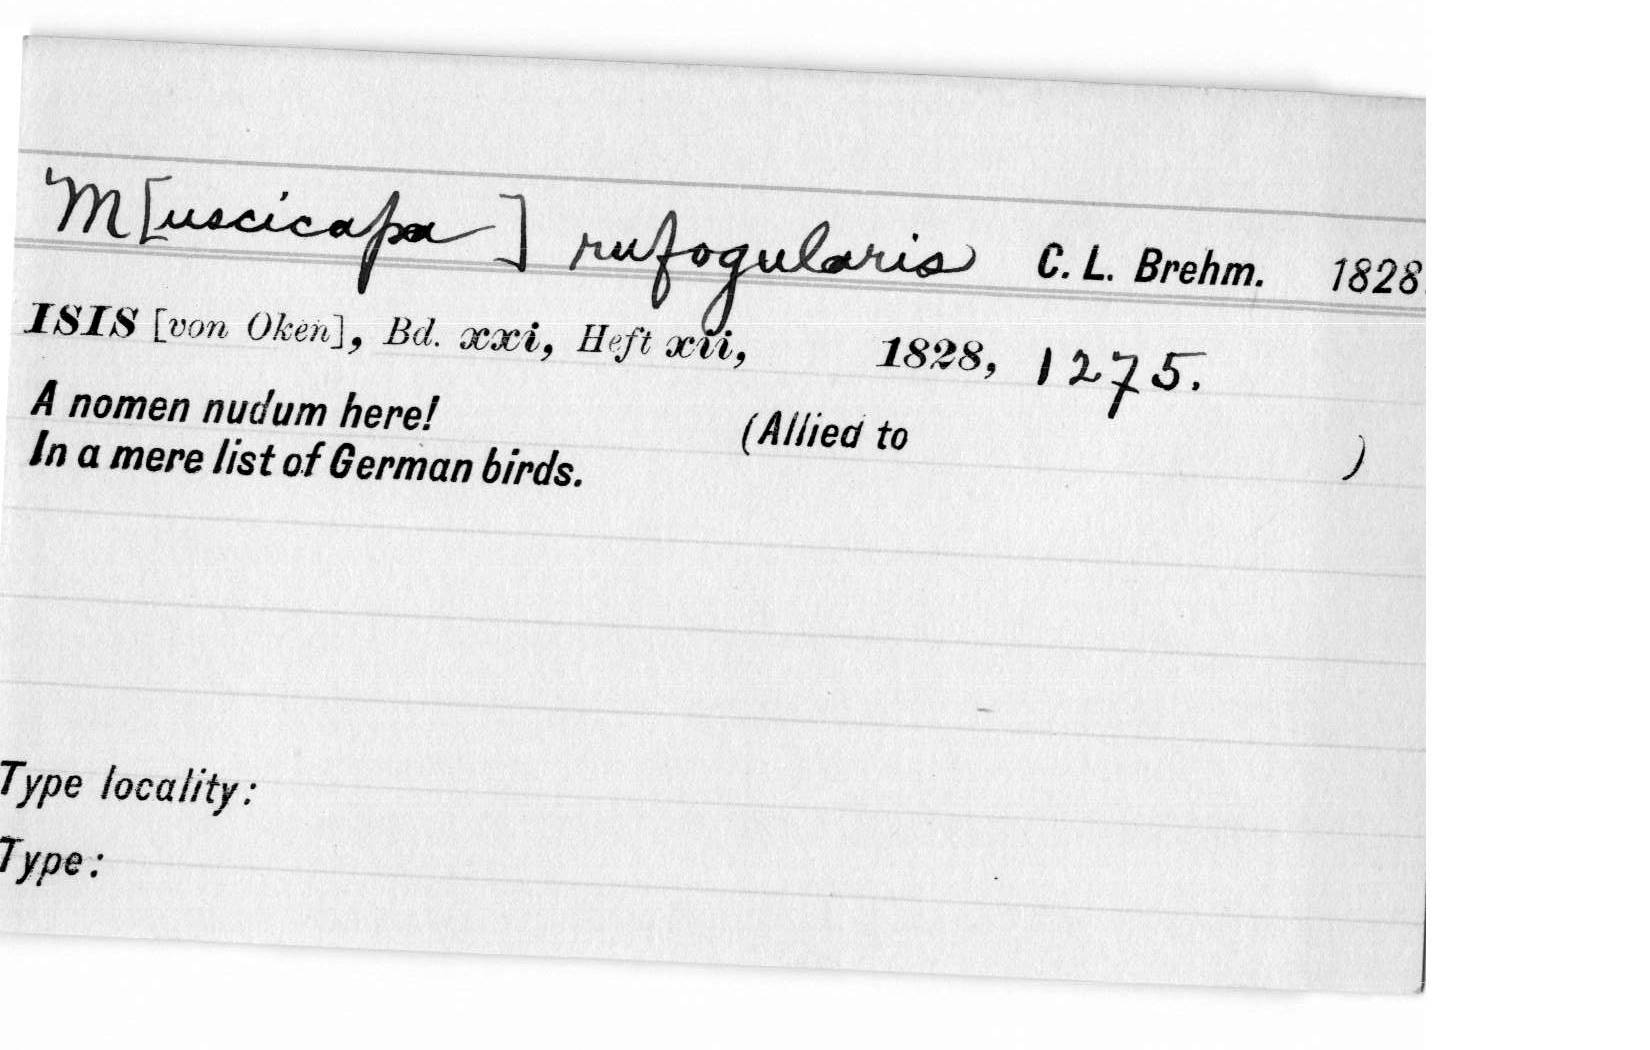 M[uscicapa] rufogularis C. L. Brehm. 1828.
ISIS [von Oken], Bd. xxi, Heft xii, 1828, 1275.
A nomen nudum here! (Allied to )
In a mere list of German birds.
Type locality:
Type: